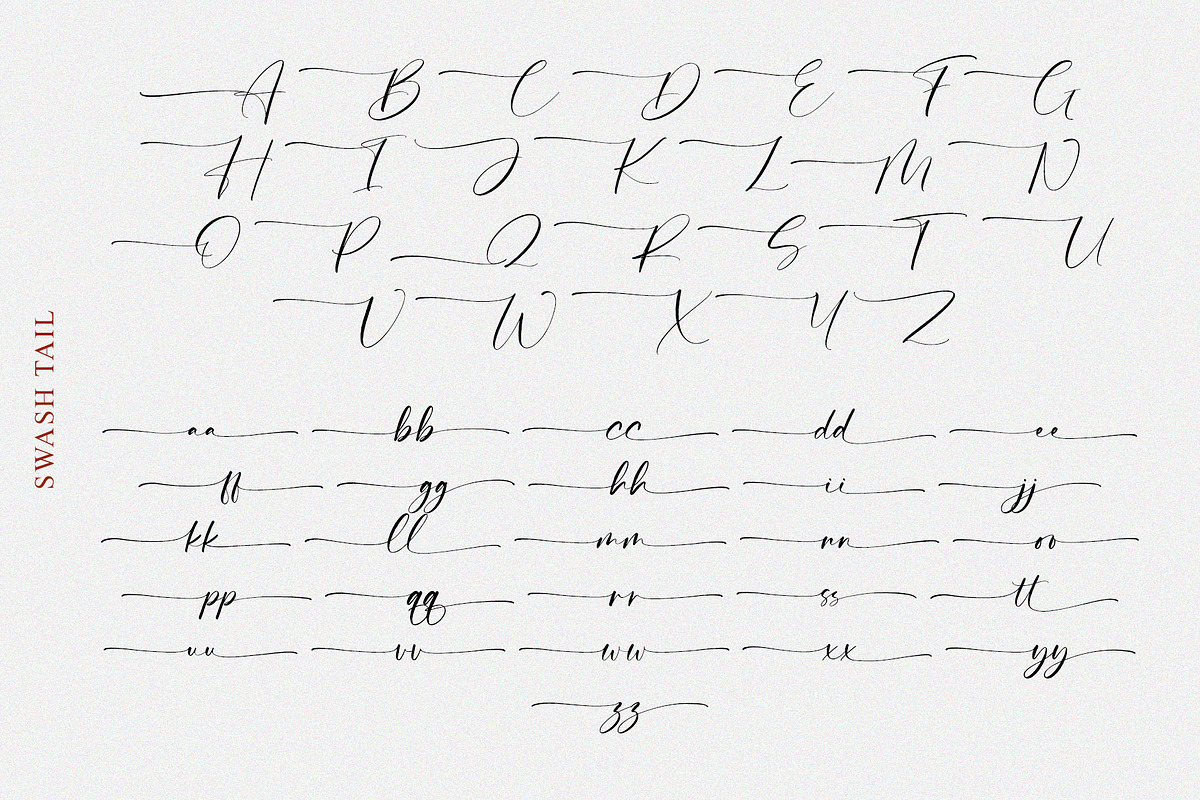 A B C D E F G
H I J K L M N
O P Q R S T U
V W X Y Z
SWASH TAIL
aa bb cc dd ee
ff gg hh ii jj
kk ll mm nn oo
pp qq rr ss tt
uu vv ww xx yy
zz